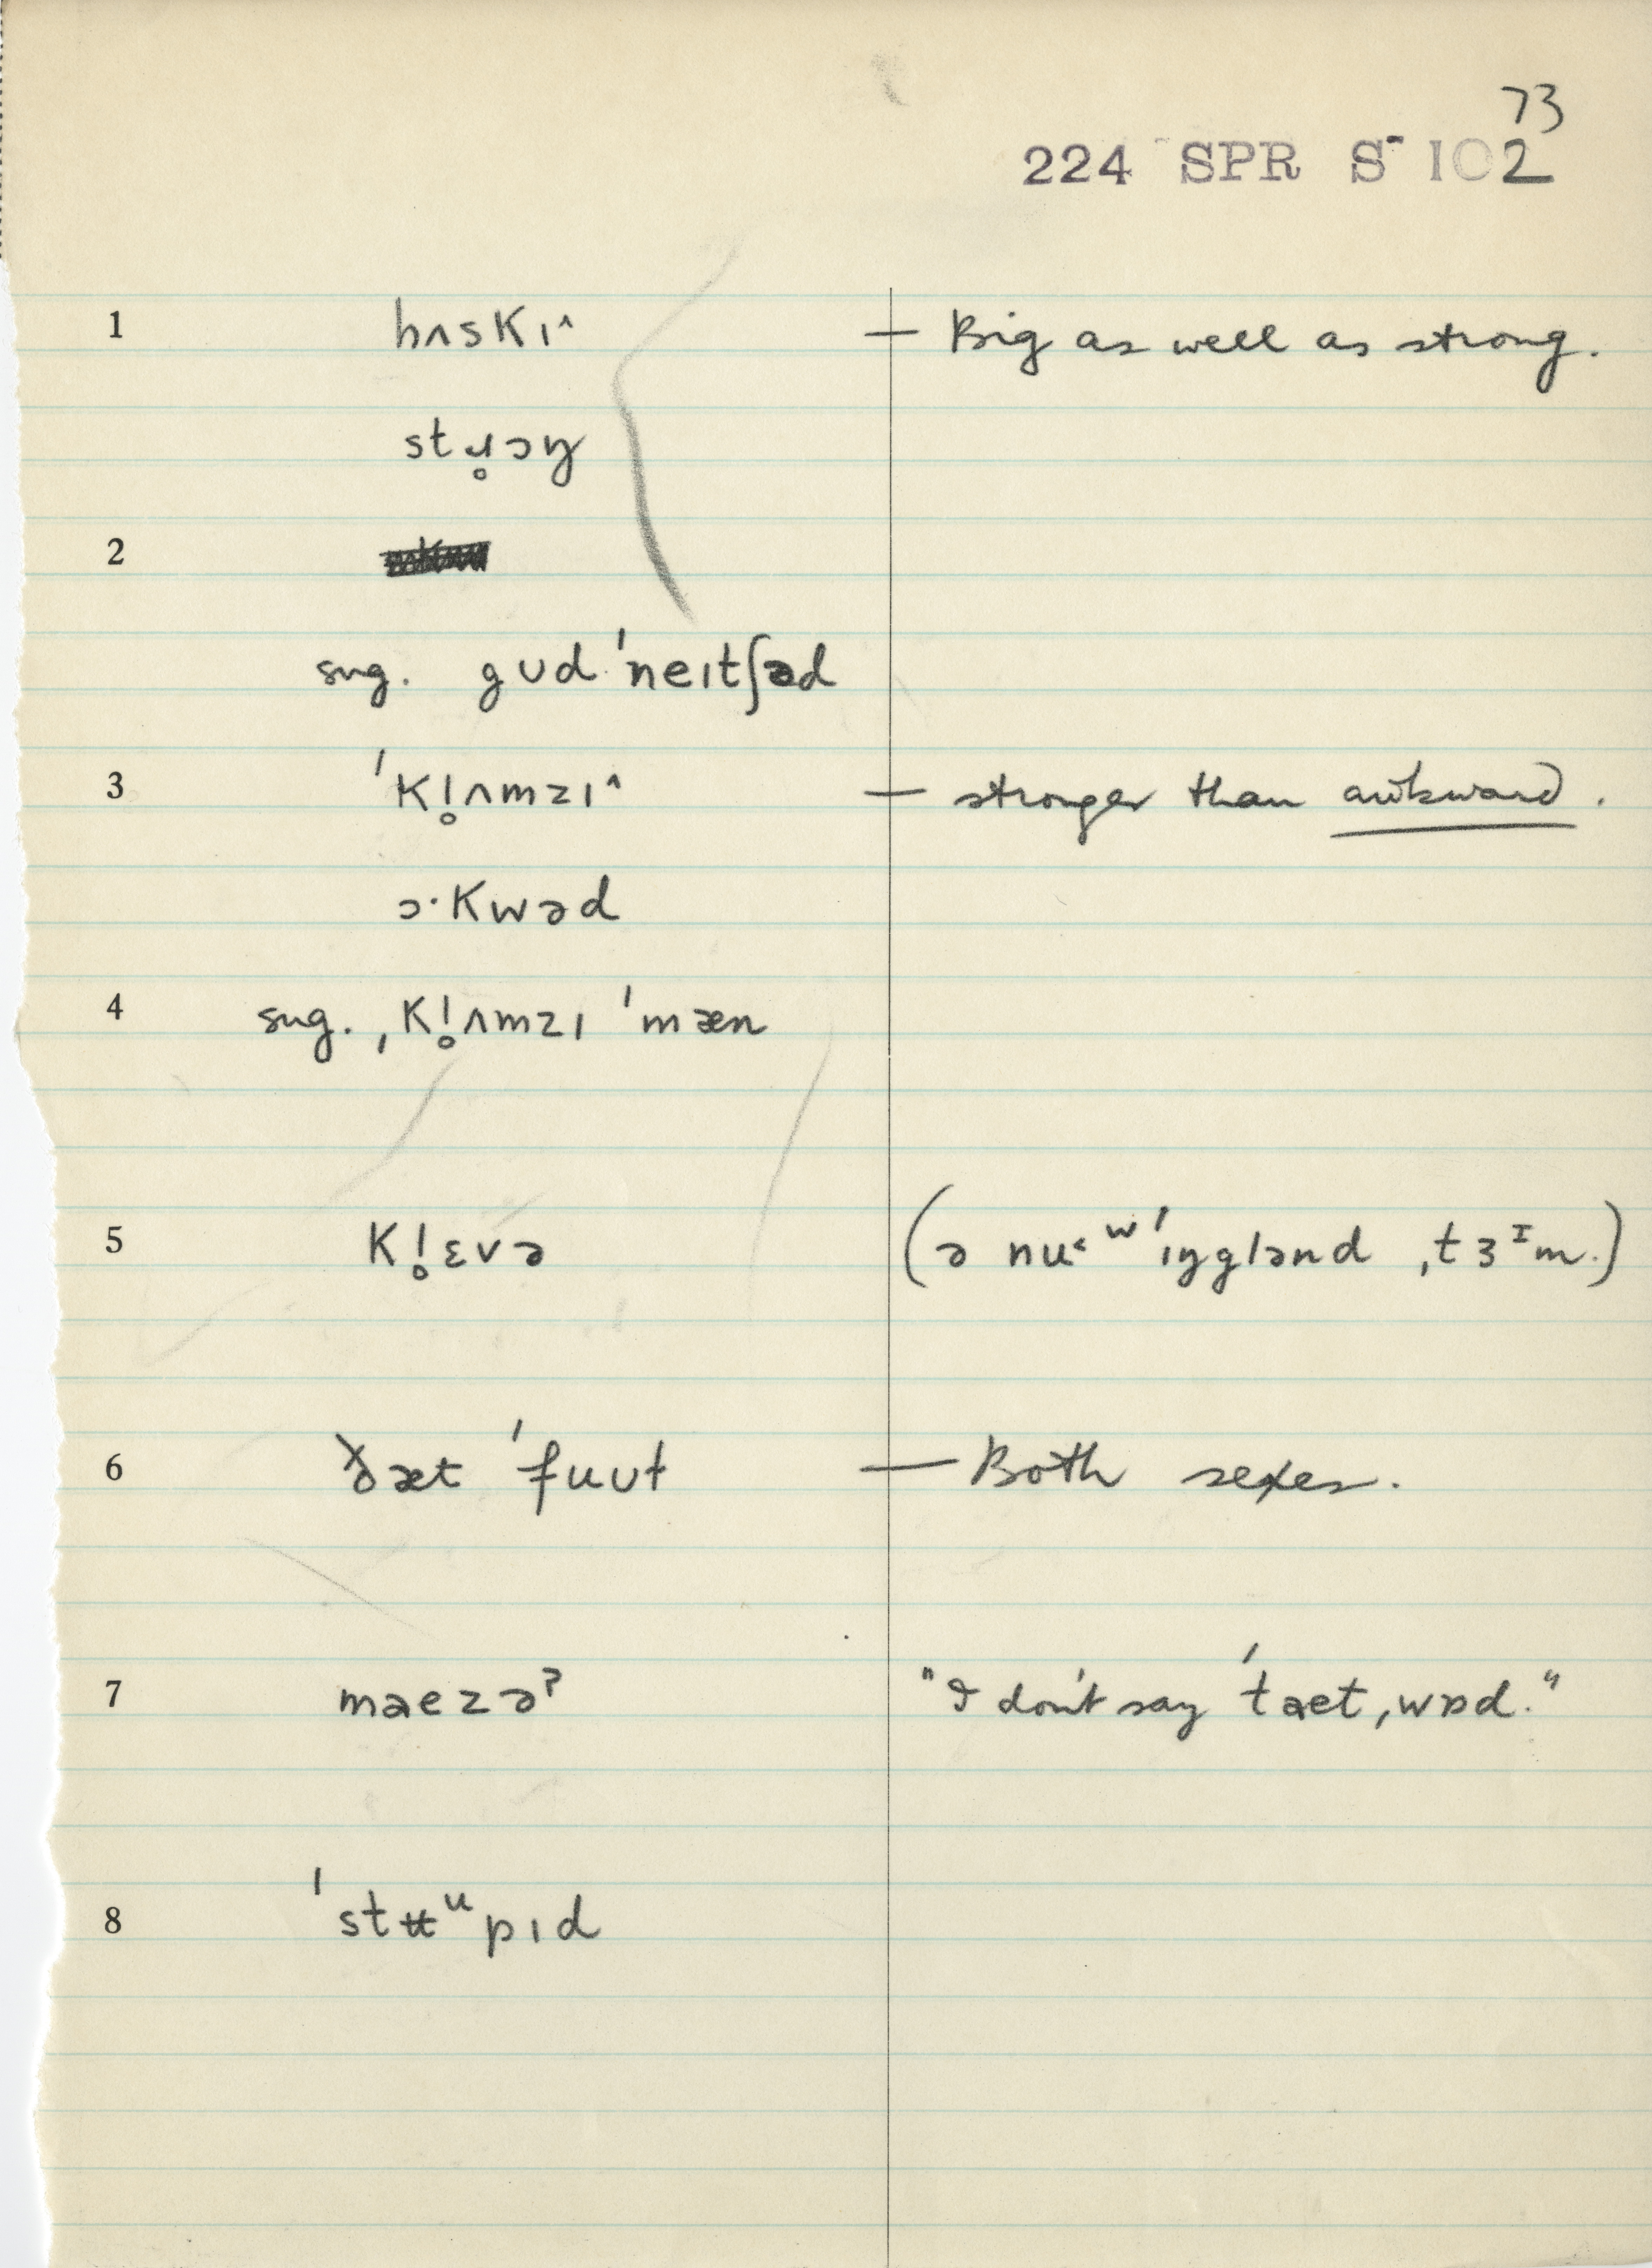 73
224 SPR S-102
1 hʌskɪ^ — Big as well as strong.
stɹ̥ɔŋ
2
sug. gʊd ˈneɪtʃəd
3 ˈkl̥ʌmzɪ^ — stronger than awkward.
ɔ·kwəd
4 sug. ˌkl̥ʌmzɪ ˈmæn
5 kl̥ɛvə (ə nu< ʷ ˈɪŋglənd ˌtɜᶦm.)
6 ðæt ˈfuʊɫ — Both sexes.
7 mæezəˀ "I don't say ˈtæt ˌwɒd."
8 ˈstʉᵘpɪd